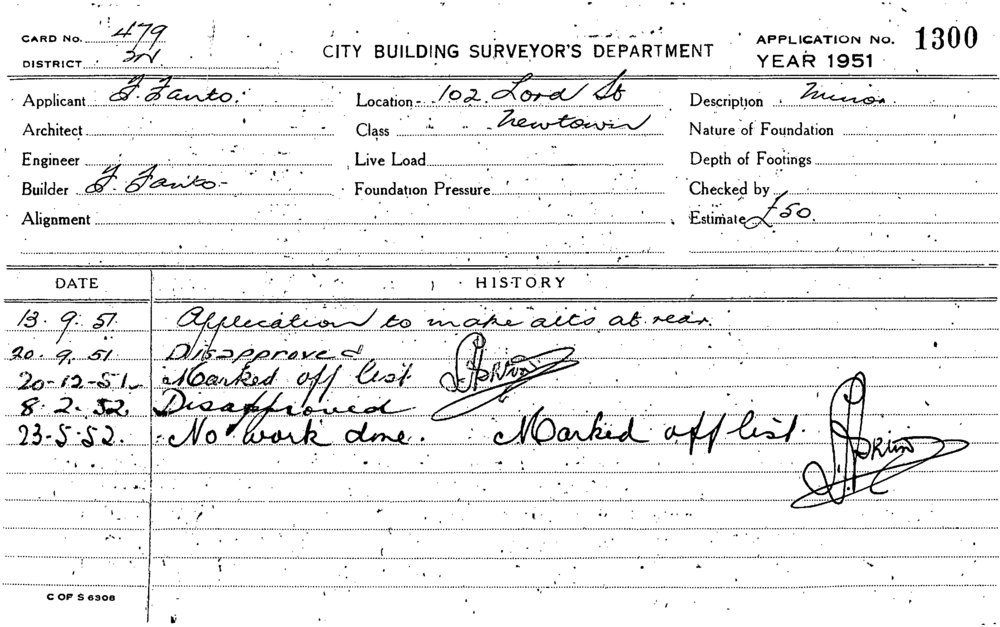 CARD No. 479
CITY BUILDING SURVEYOR'S DEPARTMENT
APPLICATION No. 1300
DISTRICT
YEAR 1951
Applicant
Location 102 Lord St
Description Minor
Architect
Class Newtown
Nature of Foundation
Engineer
Live Load
Depth of Footings
Builder
Foundation Pressure
Checked by
Alignment
Estimate £50.
DATE HISTORY
13.9.51. Application to make alts at rear.
20.9.51 Disapproved
20-12-51 Marked off list.
8.2.52. Disapproved
23-5-52. No work done. Marked off list.
C OF S 6308